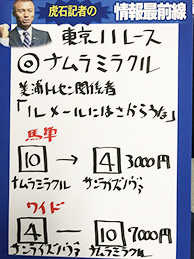 虎石記者の
情報最前線
東京11レース
◎ナムラミラクル
美浦トレセン関係者
「ルメールにはさからうな」
馬単
10 → 4 3000円
ナムラミラクル サンライズノヴァ
ワイド
4 — 10 7000円
サンライズノヴァ ナムラミラクル